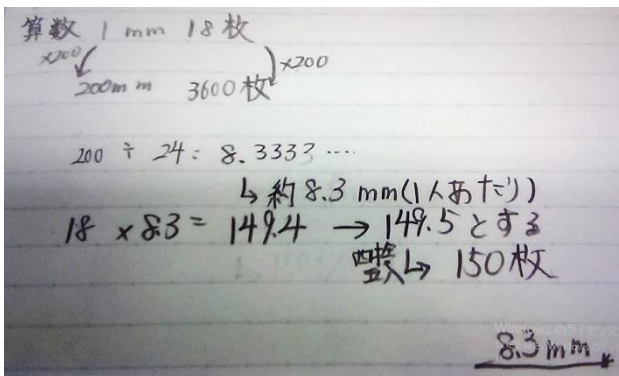 算数 1 mm 18枚
×200 ×200
200mm 3600枚
200 ÷ 24 = 8.3333 ....
↳ 約 8.3 mm (1人あたり)
18 × 8.3 = 149.4 → 149.5 とする
四捨五入↳ 150枚
8.3 mm